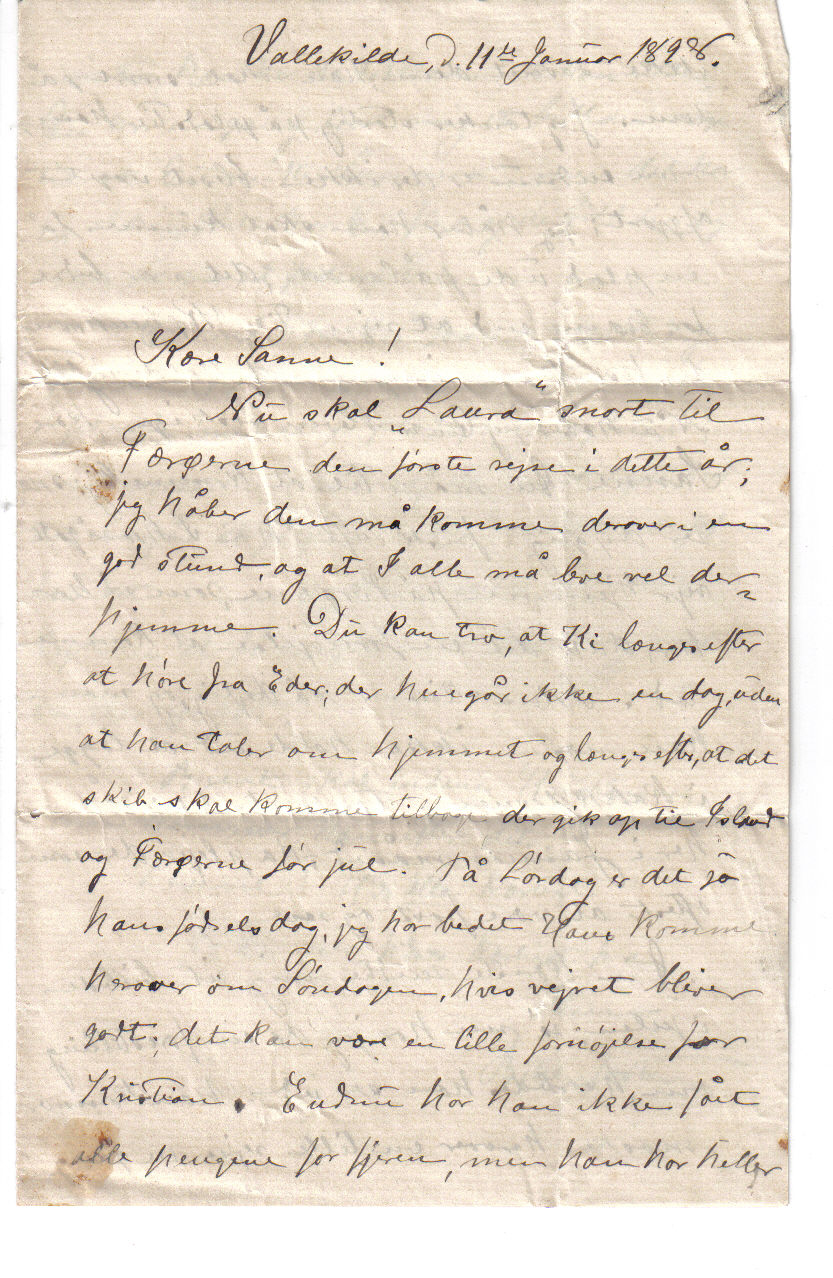 Vallekilde, d. 11te Januar 1898.
Kære Sanne!
Nu skal „Laura“ snart til
Færøerne den første rejse i dette år;
jeg håber den må komme derover i en
god stund, og at I alle må leve vel der-
hjemme. Du kan tro, at Ki længes efter
at høre fra Eder; der hengår ikke en dag, uden
at han taler om hjemmet og længes efter, at det
skib skal komme tilbage, der gik op til Island
og Færøerne før jul. På Lørdag er det jo
hans fødselsdag, jeg har bedet Hans komme
herover om Søndagen, hvis vejret bliver
godt; det kan være en lille fornøjelse for
Kristian. Endnu har han ikke fået
alle pengene for fjeren, men han har heller